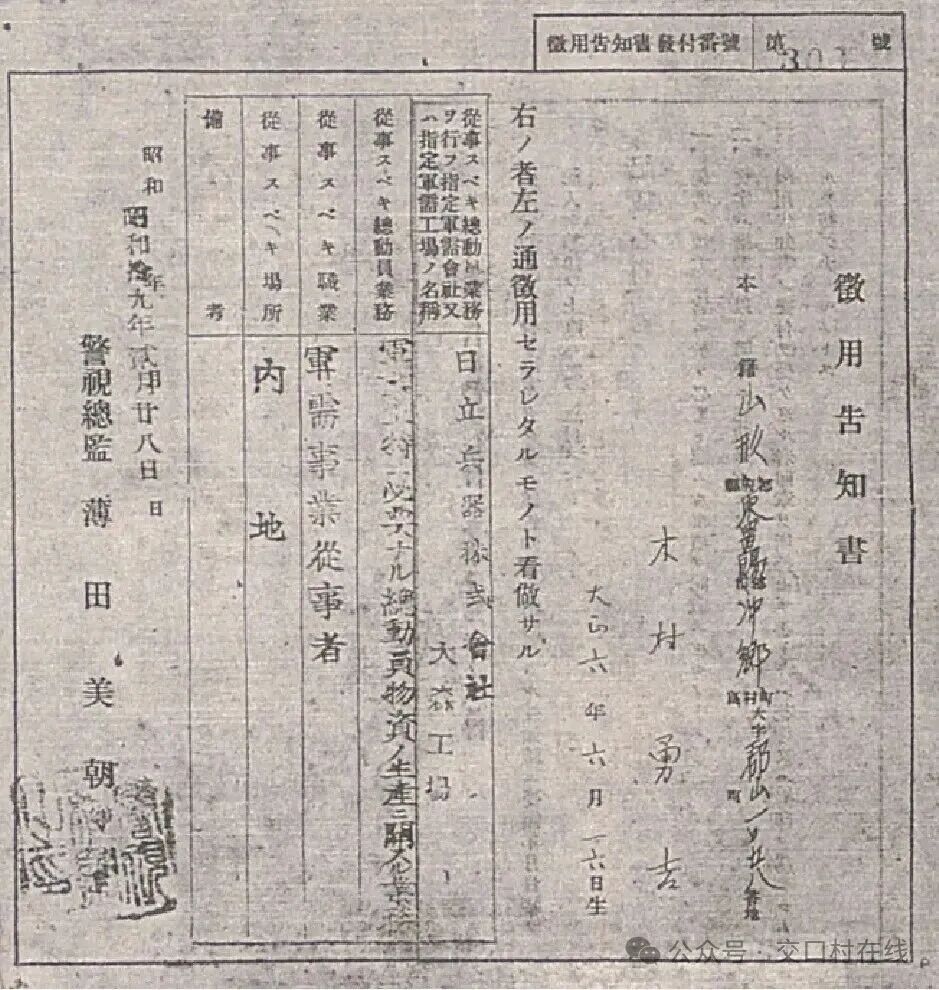 徴用告知書發付番號 第 號
徴用告知書
本籍 山形 沖郷 大字郡山
木村勇吉
大正六年六月一六日生
右ノ者左ノ通徴用セラレタルモノト看做サル
從事スベキ總動員業務
ヲ行フ指定軍需會社又
ハ指定軍需工場ノ名稱
日立兵器株式會社
大森工場
從事スベキ總動員業務
必要ナル總動員物資ノ生産ニ關スル業務
從事スベキ職業
軍需事業從事者
從事スベキ場所
內地
備考
昭和 年 月 日
昭和拾九年貳月廿八日
警視總監 薄田美朝
公众号 · 交口村在线